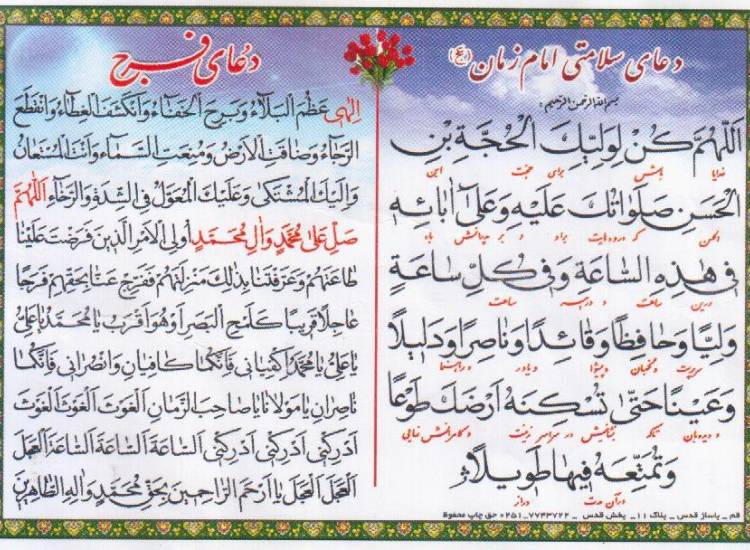 دعای سلامتی امام زمان (عج)
بسم الله الرحمن الرحیم
اَللّٰهُمَّ كُنْ لِوَلِيِّكَ الْحُجَّةِ بْنِ
خدایا باش برای حجت ابن
الْحَسَنِ صَلَواتُكَ عَلَيْهِ وَعَلىٰ اٰبائِهِ
الحسن که درودهایت بر او و بر پدرانش باد
فِي هٰذِهِ السّاعَةِ وَفِي كُلِّ ساعَةٍ
در این ساعت و در هر ساعت
وَلِيًّا وَحافِظًا وَقائِدًا وَناصِرًا وَدَلِيلًا
سرپرست و نگهبان و پیشوا و یاور و راهنما
وَعَيْنًا حَتّىٰ تُسْكِنَهُ اَرْضَكَ طَوْعًا
و دیدبان تا که
وَتُمَتِّعَهُ فِيها طَوِيلًا
در آن مدت دراز
دعای فرج
اِلٰهي عَظُمَ الْبَلاءُ وَبَرِحَ الْخَفاءُ وَانْكَشَفَ الْغِطاءُ وَانْقَطَعَ
الرَّجاءُ وَضاقَتِ الْاَرْضُ وَمُنِعَتِ السَّماءُ وَاَنْتَ الْمُسْتَعانُ
وَاِلَيْكَ الْمُشْتَكىٰ وَعَلَيْكَ الْمُعَوَّلُ فِي الشِّدَّةِ وَالرَّخاءِ اَللّٰهُمَّ
صَلِّ عَلىٰ مُحَمَّدٍ وَاٰلِ مُحَمَّدٍ اُولِي الْاَمْرِ الَّذِينَ فَرَضْتَ عَلَيْنا
طاعَتَهُمْ وَعَرَّفْتَنا بِذٰلِكَ مَنْزِلَتَهُمْ فَفَرِّجْ عَنّا بِحَقِّهِمْ فَرَجًا
عاجِلًا قَرِيبًا كَلَمْحِ الْبَصَرِ اَوْ هُوَ اَقْرَبُ يا مُحَمَّدُ يا عَلِيُّ
يا عَلِيُّ يا مُحَمَّدُ اِكْفِيانِي فَاِنَّكُما كافِيانِ وَانْصُرانِي فَاِنَّكُما
ناصِرانِ يا مَوْلانا يا صاحِبَ الزَّمانِ الْغَوْثَ الْغَوْثَ الْغَوْثَ
اَدْرِكْنِي اَدْرِكْنِي اَدْرِكْنِي السّاعَةَ السّاعَةَ السّاعَةَ الْعَجَلَ
الْعَجَلَ الْعَجَلَ يا اَرْحَمَ الرّاحِمِينَ بِحَقِّ مُحَمَّدٍ وَاٰلِهِ الطّاهِرِينَ
قم _ پاساژ قدس _ پلاک ۱۱ _ پخش قدس _ ۷۷۴۳۷۲۲-۰۲۵۱ حق چاپ محفوظ